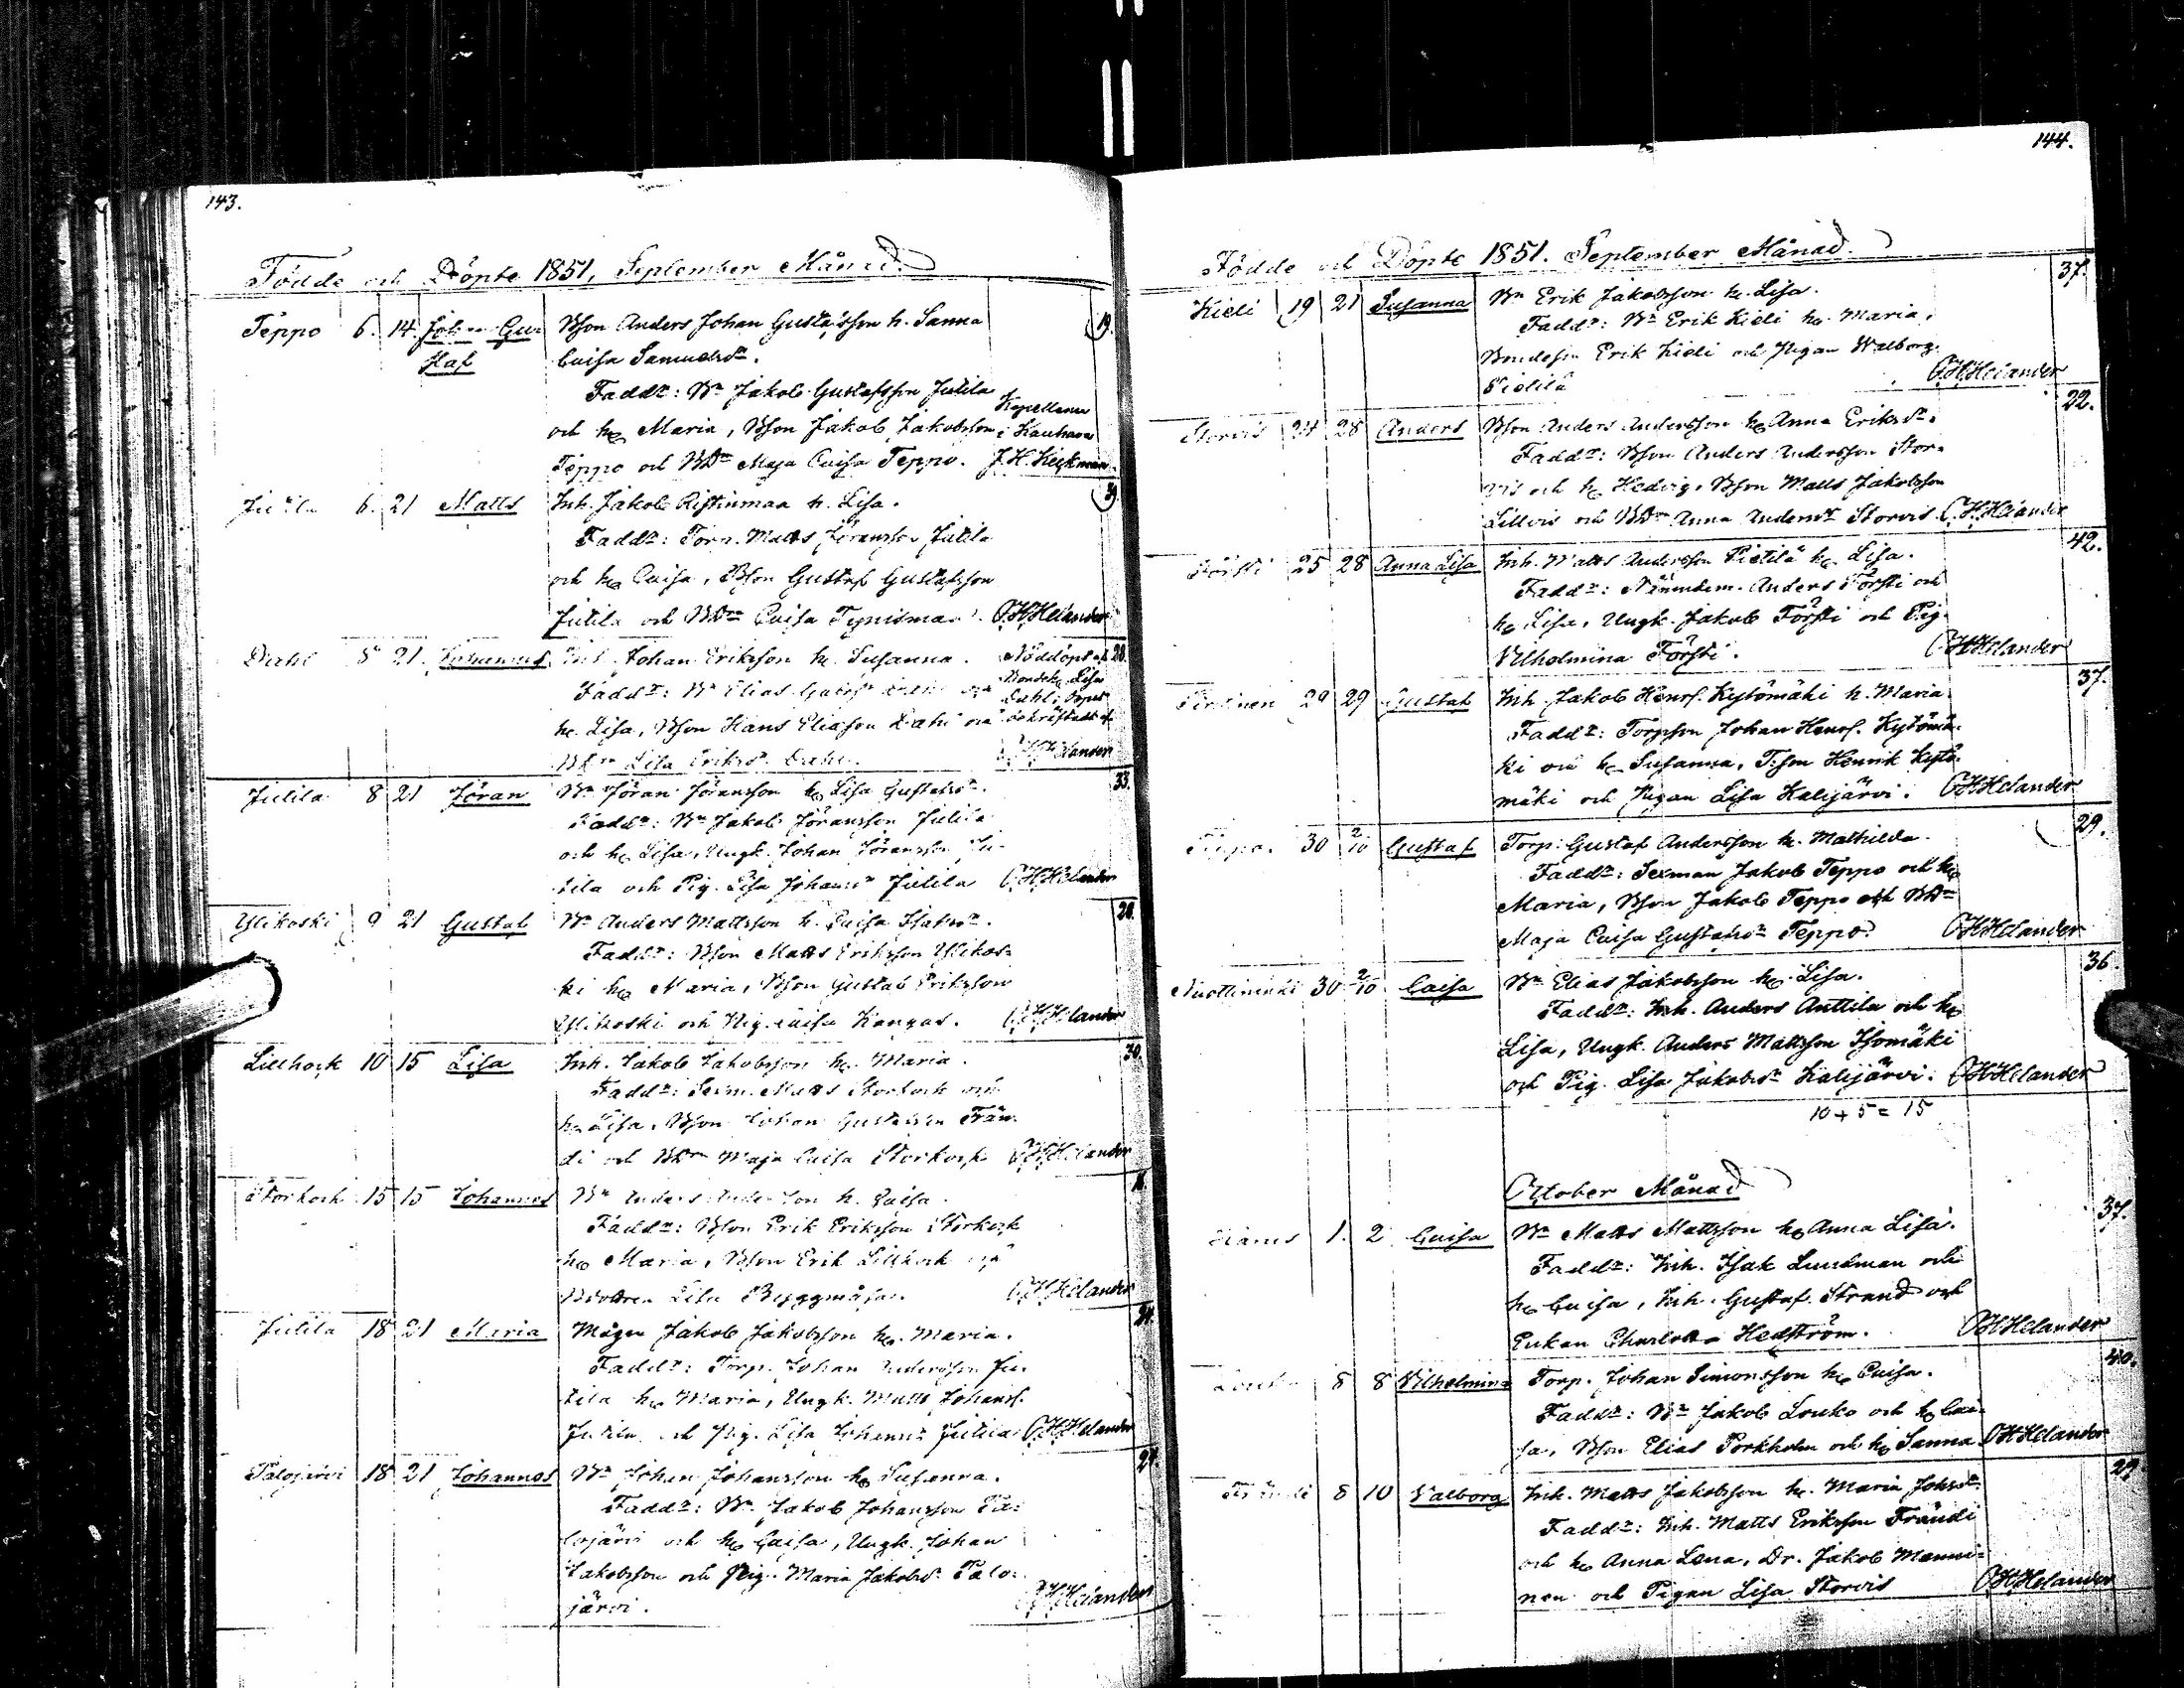 143.
Födde och Döpte 1851, September Månad.
Teppo 6. 14. Johan Gus- Bson Anders Johan Gustafsson h. Sanna 19.
taf Caisa Samuelsdr.
Faddr: Bn Jakob Gustafsson Jutila
Kapellanen
och h. Maria, Bson Jakob Jakobsson i Kauhava
Teppo och BDn Maja Caisa Teppo. J. H. Keckman
Jutila 6. 21 Matts Inh. Jakob Ristinmaa h. Lisa. 39.
Faddr: Torp. Matts Jöransson Jutila
och h. Caisa, Bson Gustaf Gustafsson
Jutila och BDn Caisa Tynismaa. C.H.Helander
Dahl 8 21. Johannes Inh. Johan Eriksson h. Susanna. Nöddöpt af 28.
Bondeh. Lisa
Faddr: Bn Elias Dahl och Dahl;
h. Lisa, Bson Hans Eliasson Dahl och bekräftadt af
BDn Lisa Eriksdr Dahl. C.H.Helander
Jutila 8 21 Jöran Bn Jöran Jöransson h. Lisa Gustafsdr. 33.
Faddr: Bn Jakob Jöransson Jutila
och h. Lisa, Ungk. Johan Jöransson Ju-
tila och Pig. Lisa Johansdr Jutila C.H.Helander
Ylikoski 9 21 Gustaf Bn Anders Mattsson h. Caisa Isaksdr. 28.
Faddr: Bson Matts Eriksson Ylikos-
ki h. Maria, Bson Gustaf Eriksson
Ylikoski och Pig. Caisa Kangas. C.H.Helander
Lillkock 10 15 Lisa Inh. Jakob Jakobsson h. Maria. 30.
Faddr: Sexm. Matts Storkock och
h. Lisa, Bson Johan Gustafsson Frän-
di och BDn Maja Caisa Storkock C.H.Helander
Storkock 15 15 Johannes Bn Anders Andersson h. Caisa.
Faddr: Bson Erik Eriksson Storkock
h. Maria, Bson Erik Lillkock och
Lisa Byggmäsa. C.H.Helander
Jutila 18 21 Maria Mågen Jakob Jakobsson h. Maria.
Faddr: Torp. Johan Andersson Ju-
tila h. Maria, Ungk. Matts Johanss.
Jutila och Pig. Lisa Johansdr Jutila C.H.Helander
Palojärvi 18 21 Johannes Bn Johan Johansson h. Susanna. 24.
Faddr: Bn Jakob Johansson Pa-
lojärvi och h. Caisa, Ungk. Johan
Jakobsson och Pig. Maria Jakobsdr Palo-
järvi. C.H.Helander
144.
Födde och Döpte 1851. September Månad.
Kieli 19 21 Susanna Bn Erik Jakobsson h. Lisa. 37.
Faddr: Bn Erik Kieli h. Maria,
Bondeson Erik Kieli och Pigan Walborg
Pietilä C.H.Helander
Storvis 24 28 Anders Bson Anders Andersson h. Anna Eriksdr. 22.
Faddr: Bson Anders Andersson Stor-
vis och h. Hedvig, Bson Matts Jakobsson
Lillvis och BDn Anna Andersdr Storvis. C.H.Helander
Försti 25 28 Anna Lisa Inh. Matts Andersson Pietilä h. Lisa. 42.
Faddr: Nämndem. Anders Försti och
h. Lisa, Ungk. Jakob Försti och Pig.
Vilhelmina Försti. C.H.Helander
29 29 Gustaf Inh. Jakob Henrs. Kytömäki h. Maria 37.
Faddr: Torpson Johan Henrs. Kytömä-
ki och h. Susanna, T:son Henrik Kytö-
mäki och Pigan Lisa Kalijärvi. C.H.Helander
Teppo. 30 2/10 Gustaf Torp. Gustaf Andersson h. Mathilda. 29.
Faddr: Sexman Jakob Teppo och h.
Maria, Bson Jakob Teppo och BDn
Maja Caisa Gustafsdr Teppo. C.H.Helander
30 2/10 Caisa Bn Elias Jakobsson h. Lisa. 36.
Faddr: Inh. Anders Anttila och h.
Lisa, Ungk. Anders Mattsson Isomäki
och Pig. Lisa Jakobsdr Kalijärvi. C.H.Helander
10 + 5 = 15
October Månad
1. 2 Caisa Bn Matts Mattsson h. Anna Lisa. 37.
Faddr: Inh. Isak Lundman och
h. Caisa, Inh. Gustaf Strand och
Enkan Charlotta Hedström. C.H.Helander
Louko 8 8 Vilhelmina Torp. Johan Simonsson h. Caisa. 40.
Faddr: Bn Jakob Louko och h. Cai-
sa, Bson Elias Porkholm och h. Sanna C.H.Helander
Frändi 8 10 Valborg Inh. Matts Jakobsson h. Maria Johsdr. 29.
Faddr: Inh. Matts Eriksson Frändi
och h. Anna Lena, Dr. Jakob Manni-
nen och Pigan Lisa Storvis C.H.Helander